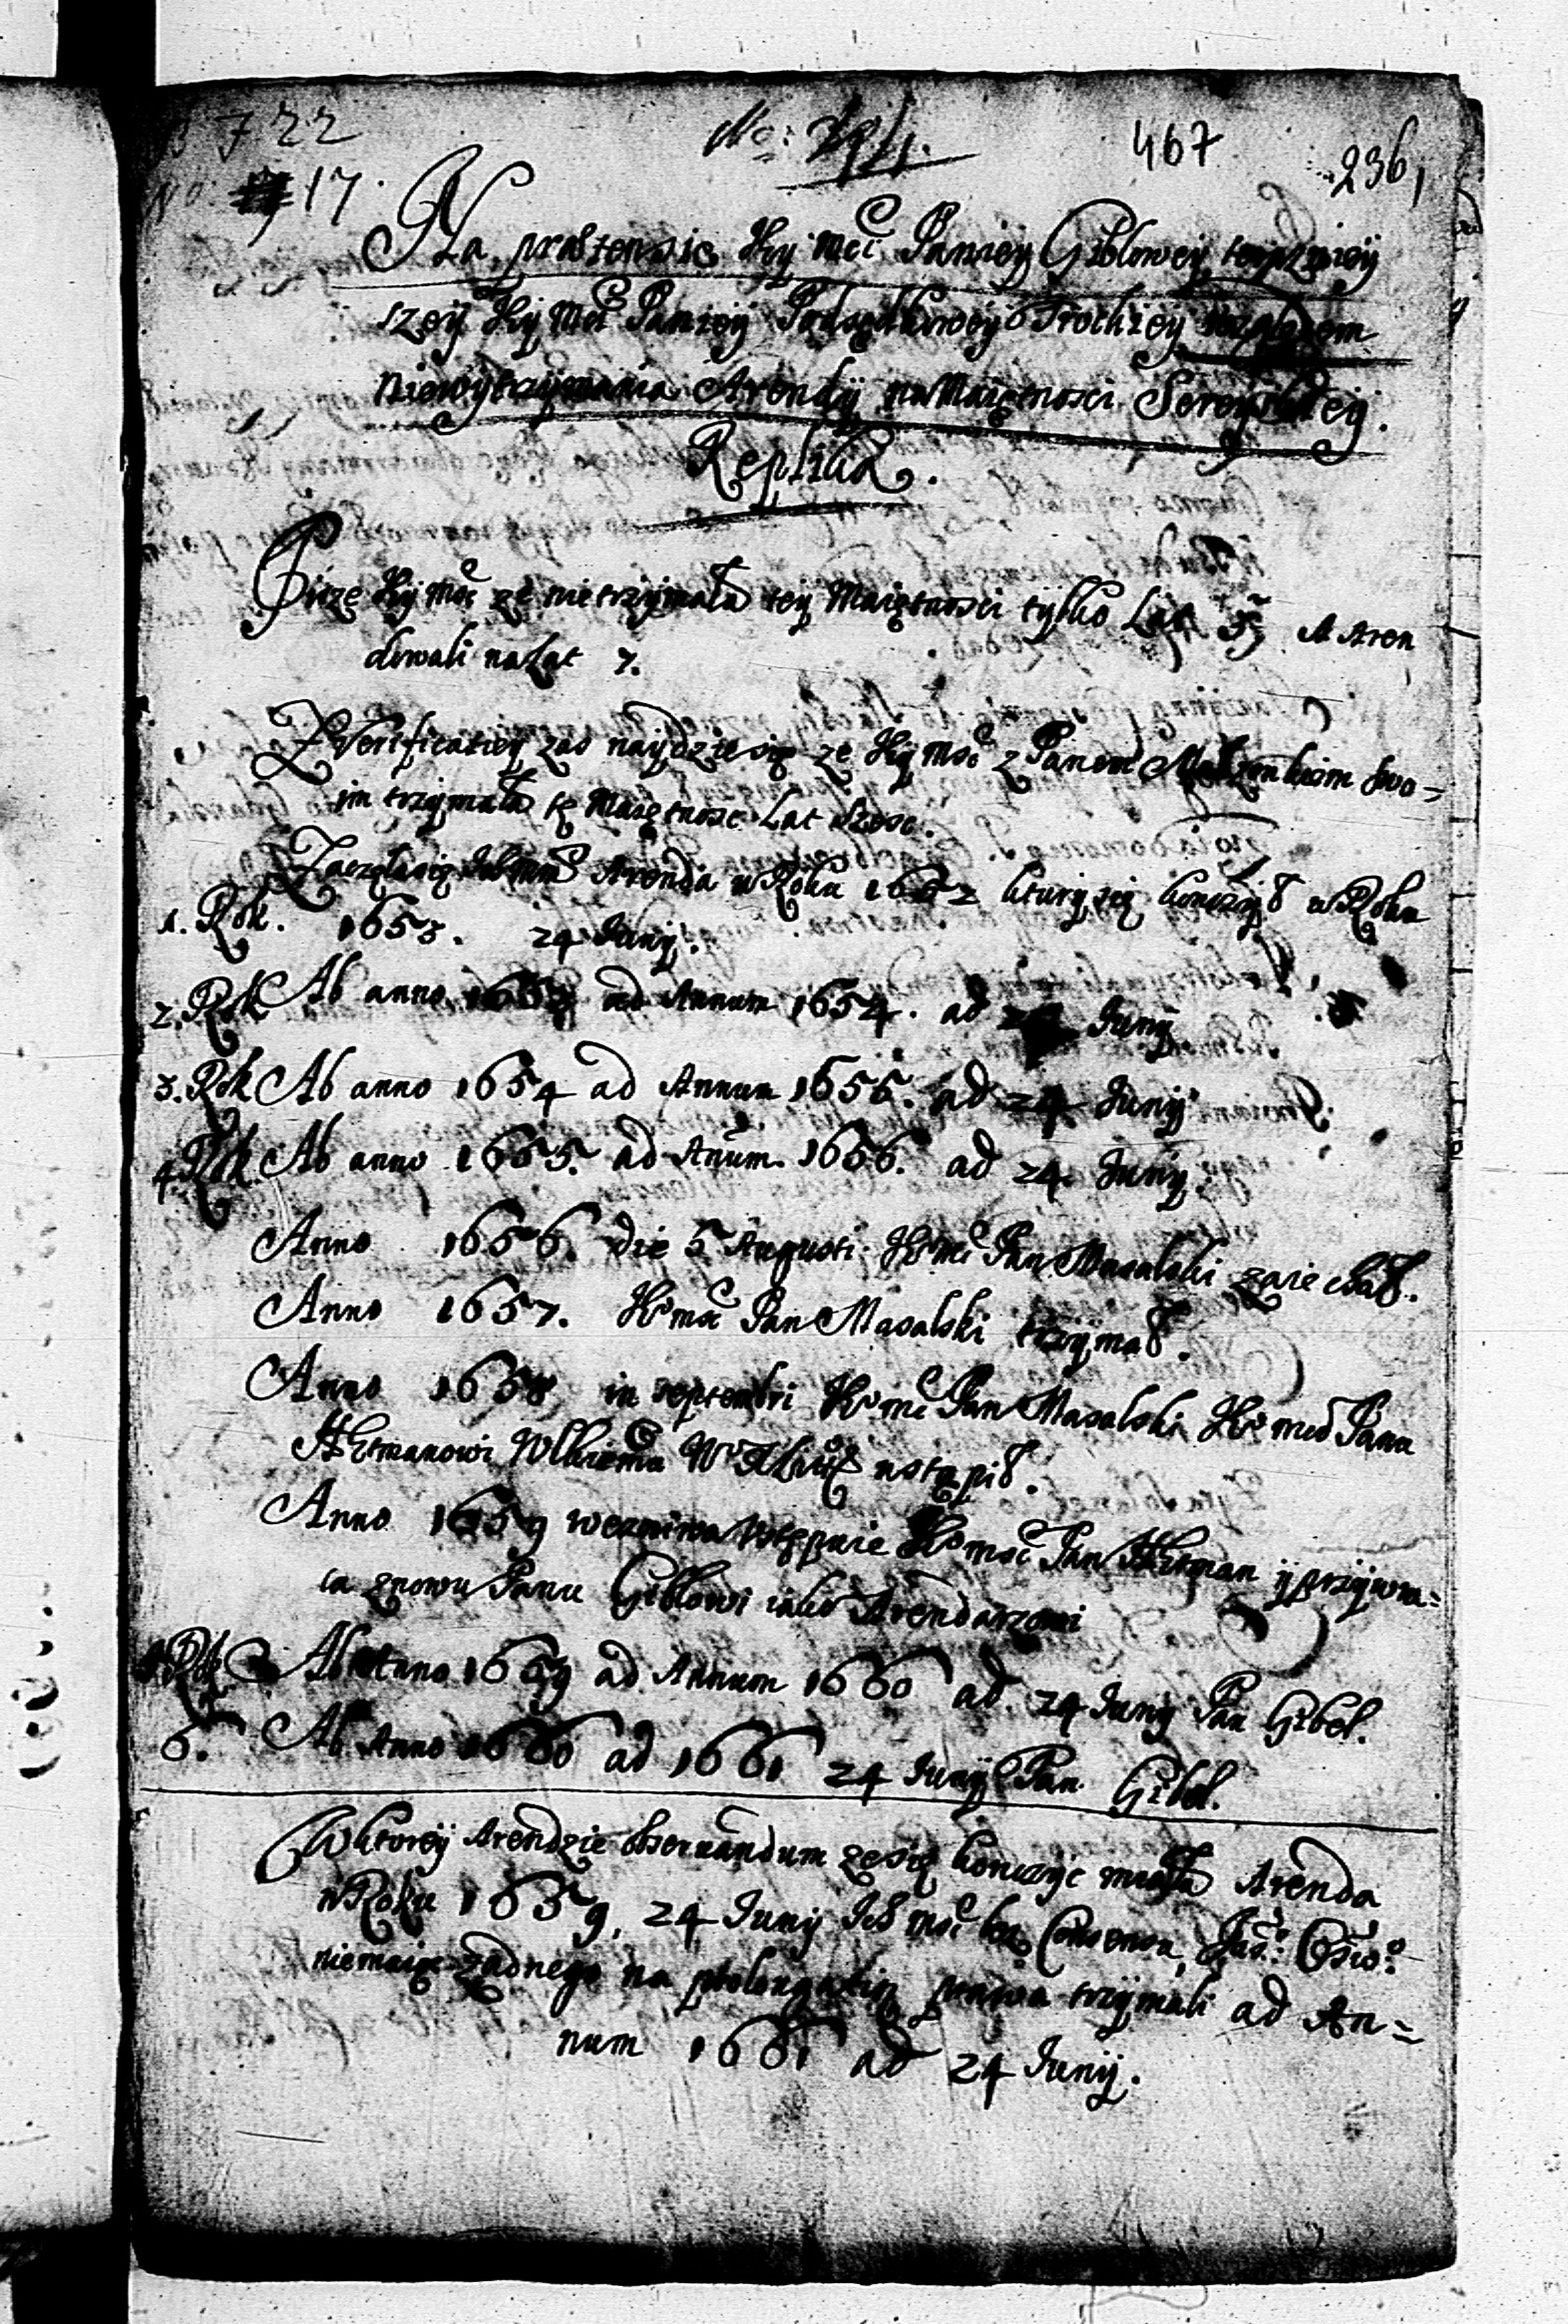 B 722
No: 17.
467
236,
Na prætensię Hey Mći Paniey Giblowey teraznieÿ
szeÿ Hey Mći Paniey Podsędkowey Trockiey względem
Niewytrzymania Arendÿ na Maiętnosci Sereyskieÿ.
Replika.
Pisze Hey Mść ze nie trzÿmała tey Maiętnosci tylko Lat 3 A Aren
dowali na Lat 7.
Z Verificatiey zas naÿdzie się ze Hey Mść z Panem Małzonkiem swo=
im trzymała tę Maiętnosc Lat szesc.
Zaczęła się Arenda w Roku 1652 kturÿ się konczÿł w Roku
1. Rok. 1653. 24 Junÿ.
2. Rok Ab anno 1653 ad Annum 1654. ad 24 Junÿ
3. Rok Ab anno 1654 ad Annum 1655. ad 24 Junÿ
4 Rok Ab anno 1655. ad Anum. 1656. ad 24 Junÿ.
Anno 1656. die 5 Augusti Hº Mć Pan Masalski zaiechał.
Anno 1657. Hº Mść Pan Masalski trzÿmał.
Anno 1658 in septembri Hº Mć Pan Masalski Hº Mći Panu
Hetmanowi Wlkiemu Wº X Litº ustąpił.
Anno 1659 we zniwa ustępuie Hº Mość Pan Hetman ÿ przÿwra=
ca znowu Panu Giblowi iako Arendarzowi
5 Rok Ab Anno 1659 ad Annum 1660 ad 24 Junÿ Pan Gibel.
6. Ab Anno 1660 ad 1661 24 Junÿ Pan Gibel.
W ktoreÿ Arendzie observandum ze się konczÿc miała Arenda
w Roku 1659, 24 Junÿ Ich Mść bez Consensu,
niemaiąc zadnego na prolongatią prawa trzÿmali ad An=
num 1661 ad 24 Junÿ.